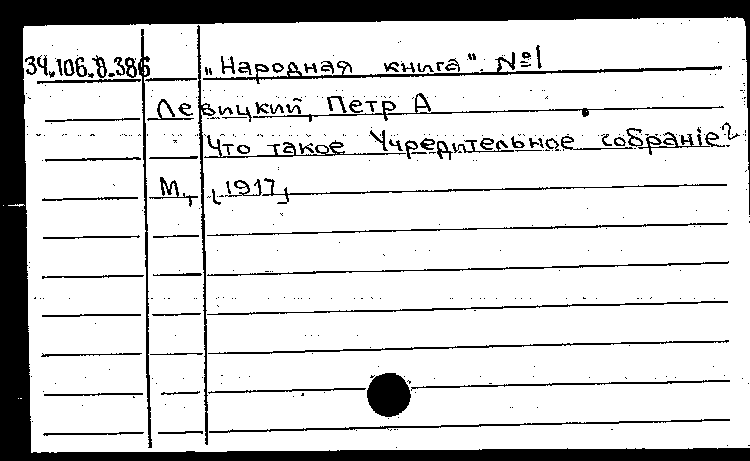 34.106.8.386 „Народная книга". №1
Левицкий, Петр А
Что такое Учредительное собраніе?
М., [1917]